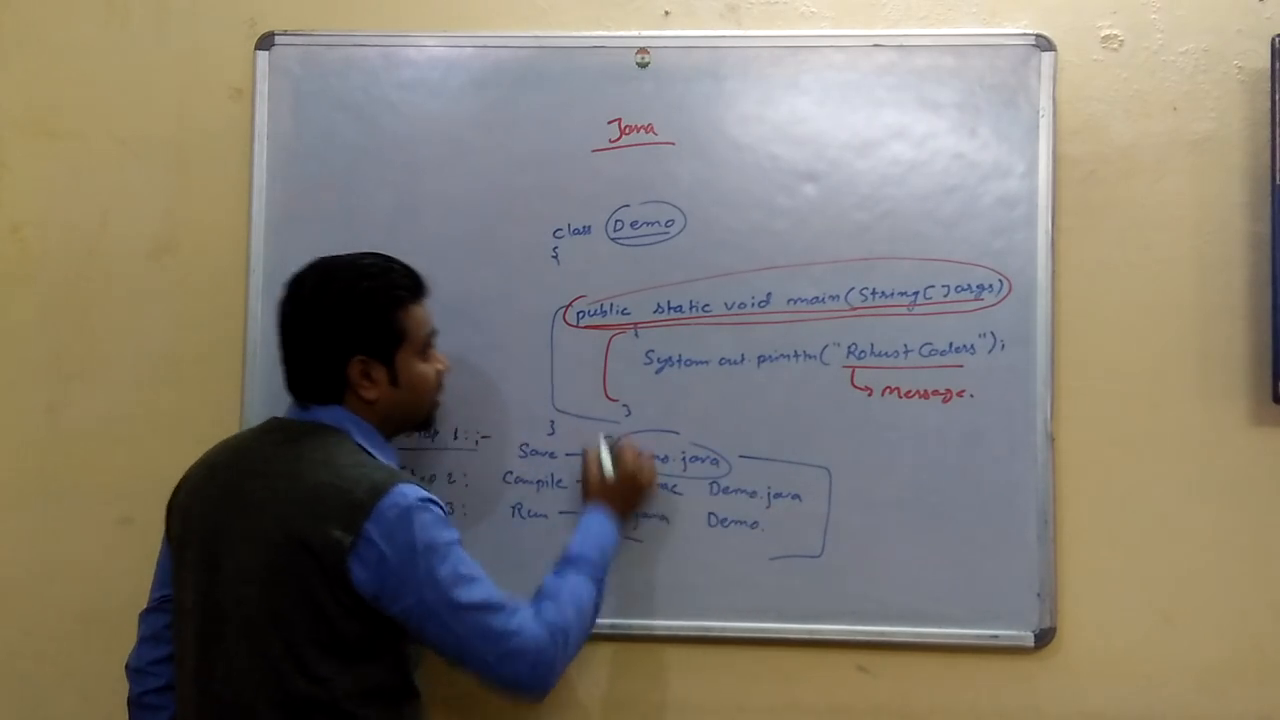 Java
class Demo
{
public static void main(String[] args)
{
System.out.println("Robust Coders");
Message.
}
}
1:-
Save - mo.java
2: Compile - Demo.java
3: Run - java Demo.